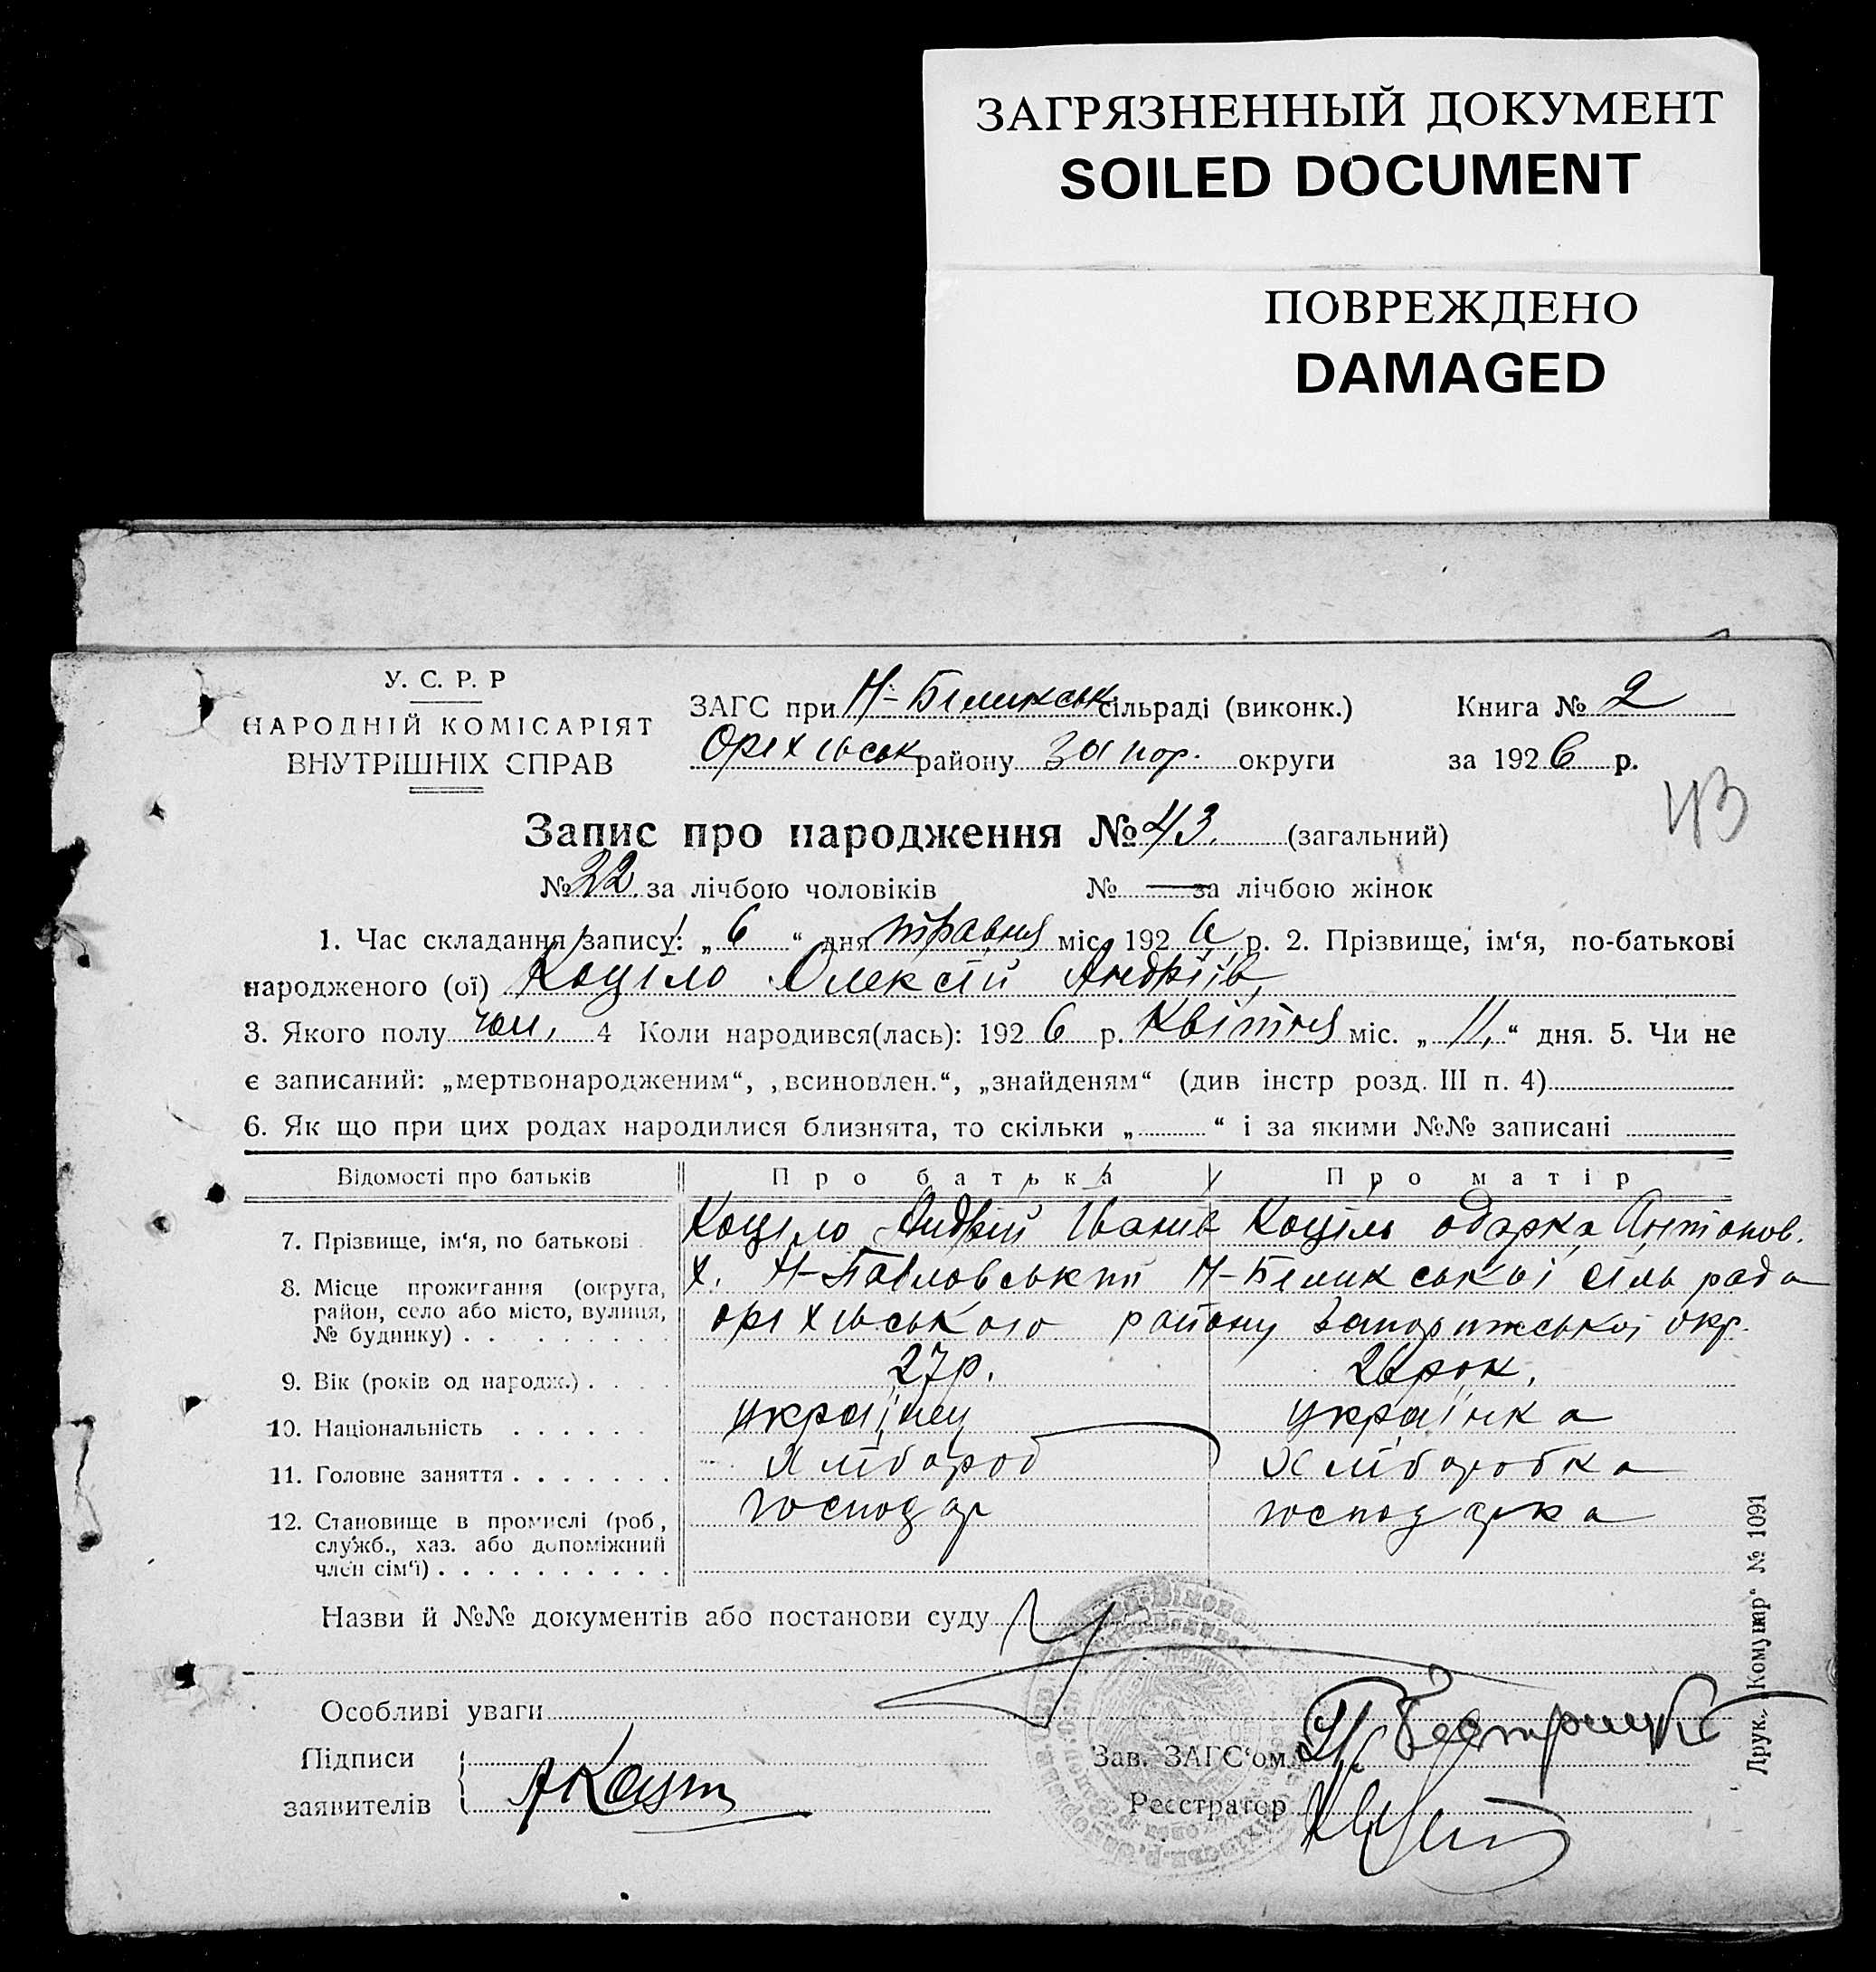 ЗАГРЯЗНЕННЫЙ ДОКУМЕНТ
SOILED DOCUMENT
ПОВРЕЖДЕНО
DAMAGED
У. С. Р. Р
НАРОДНІЙ КОМІСАРІЯТ
ВНУТРІШНІХ СПРАВ
ЗАГС при Н-Беликськ сільраді (виконк.)
Оріхівськ району Запор. округи
Книга № 2
за 1926 р.
43
Запис про народження № 43. (загальний)
№ 22. за лічбою чоловіків № — за лічбою жінок
1. Час складання запису: „ 6 “ дня травня міс. 1926 р. 2. Прізвище, ім‘я, по-батькові
народженого (ої) Коціло Олексій Андріїв,
3. Якого полу чол. 4 Коли народився(лась): 1926 р. Квітня міс. „ 11, “ дня. 5. Чи не
є записаний: „мертвонародженим“, „всиновлен.“, „знайденям“ (див інстр розд. III п. 4)
6. Як що при цих родах народилися близнята, то скільки „ “ і за якими №№ записані
Відомості про батьків Про батька Про матір
7. Прізвище, ім‘я, по батькові Коціло Андрій Іванів Коціло Одарка Антонов.
8. Місце прожигання (округа, х. Н-Павловський Н-Беликської сіль рада
район, село або місто, вулиця, оріхівського району Запоріжської окр.
№ будинку)
9. Вік (років од народж.) 27 р. 26 рок.
10. Національність українец українка
11. Головне заняття Хлібороб Хліборобка
12. Становище в промислі (роб, господар господарка
служб., хаз. або допоміжний
член сім‘ї)
Назви й №№ документів або постанови суду
Особливі уваги
Підписи
заявителів
Зав. ЗАГС‘ом
Реєстратор
Друк. „Комунар“ № 1091